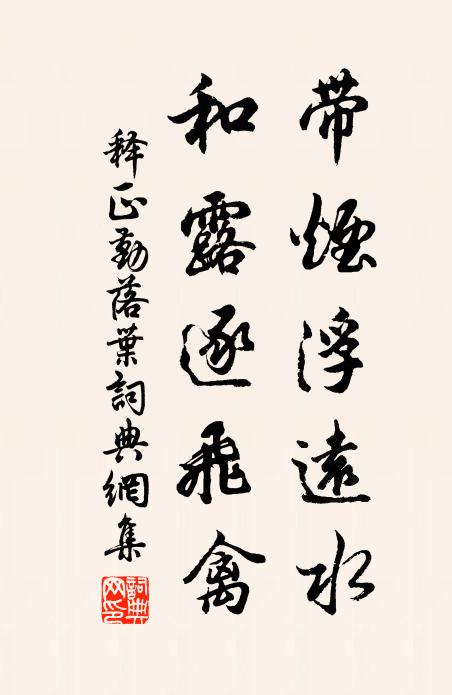 带煙浮遠水
和露逐飛禽
释正勤落葉詞典網集
詞典网印